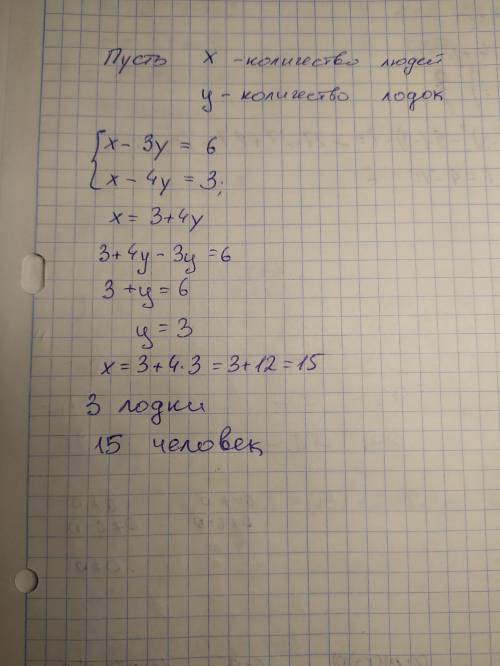 Пусть x - количество людей
y - количество лодок
x - 3y = 6
x - 4y = 3;
x = 3+4y
3+4y - 3y = 6
3 + y = 6
y = 3
x = 3+4·3 = 3+12 = 15
3 лодки
15 человек